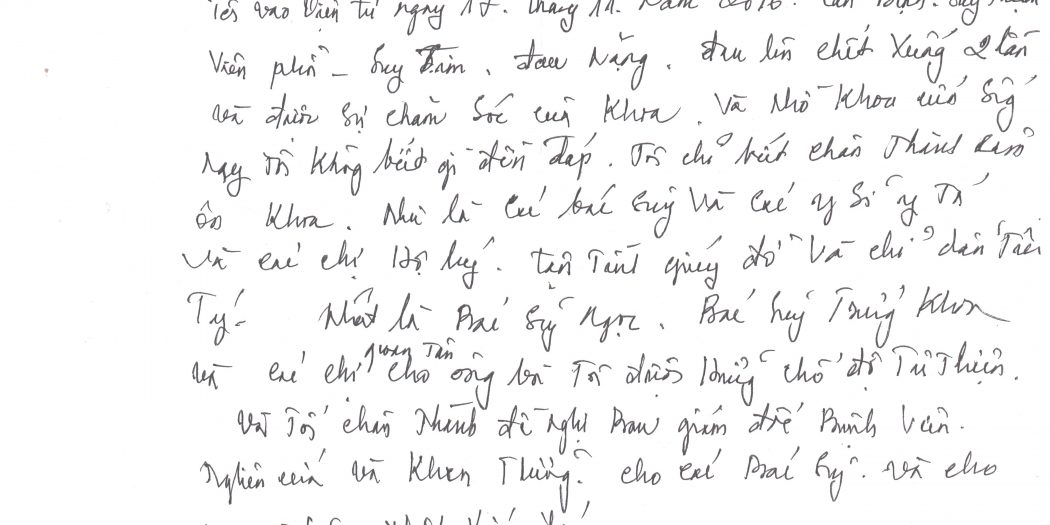 vào viện từ ngày 15. tháng 11. Năm 2016.
Viêm phổi – suy Tim. đau nặng. đau lên chết xuống 2 lần
và được sự chăm sóc của Khoa. Và Nhờ Khoa cứu sống
Nay Tôi không biết gì đền đáp. Tôi chỉ biết chân Thành cảm
ơn Khoa. Như là các bác sỹ và các y sĩ y Tá
và các chị Hộ lý. tận Tình giúp đỡ và chỉ dẫn
Tý. Nhất là Bác sỹ Ngọc. Bác sỹ Trưởng Khoa
và các chị quan Tâm cho ông bà Tôi được hưởng chế độ Từ Thiện.
Và Tôi chân Thành đề nghị Ban giám đốc Bệnh Viện.
Nghiên cứu và Khen Thưởng. cho các Bác sỹ. và cho